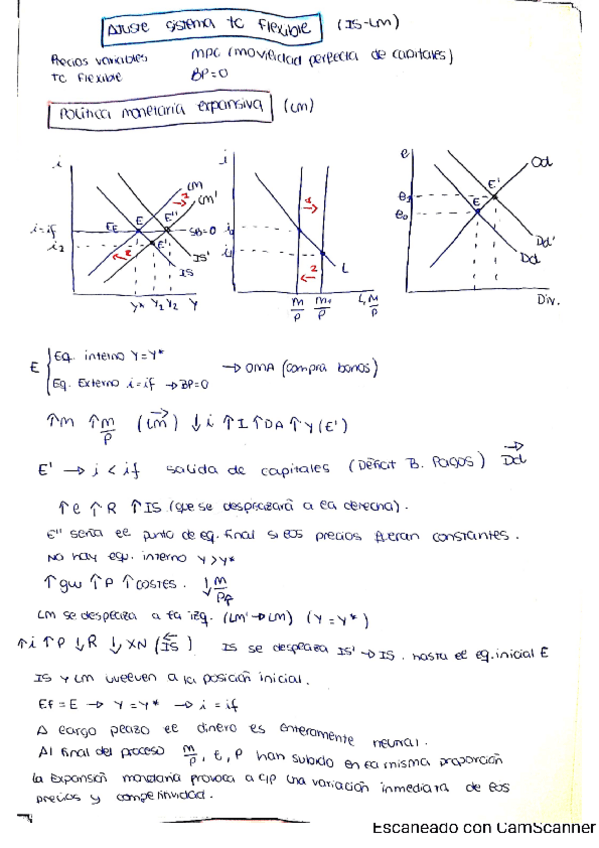 Ajuste sistema tc flexible (IS-LM)
Precios variables MPC (movilidad perfecta de capitales)
TC flexible BP=0
Política monetaria expansiva (LM)
i LM LM' 1 E E'' EE i=if SB=0 i2 E' 2 IS' IS Y* Y1 Y2 Y
i 1 2 L M/P M1/P L, M/P
e Od E' e1 E e0 Dd' Dd Div.
E { Eq. interno Y=Y*
Eq. Externo i=if → BP=0 → OMA (compra bonos)
↑M ↑M/P (LM→) ↓i ↑I ↑DA ↑Y (E')
E' → i < if salida de capitales (Déficit B. Pagos) Dd→
↑e ↑R ↑IS (que se desplazará a la derecha).
E'' sería el punto de eq. final si los precios fueran constantes.
No hay equ. interno Y>Y*
↑gw ↑P ↑costes. ↓M/P↑
LM se desplaza a la izq. (LM'→LM) (Y=Y*)
↑i ↑P ↓R ↓XN (IS←) IS se desplaza IS'→IS. hasta el eq. inicial E
IS y LM vuelven a la posición inicial.
Ef = E → Y=Y* → i=if
A largo plazo el dinero es enteramente neutral.
Al final del proceso M/P, E, P han subido en la misma proporción
la expansión monetaria provoca a c/p una variación inmediata de los
precios y competitividad.
Escaneado con CamScanner